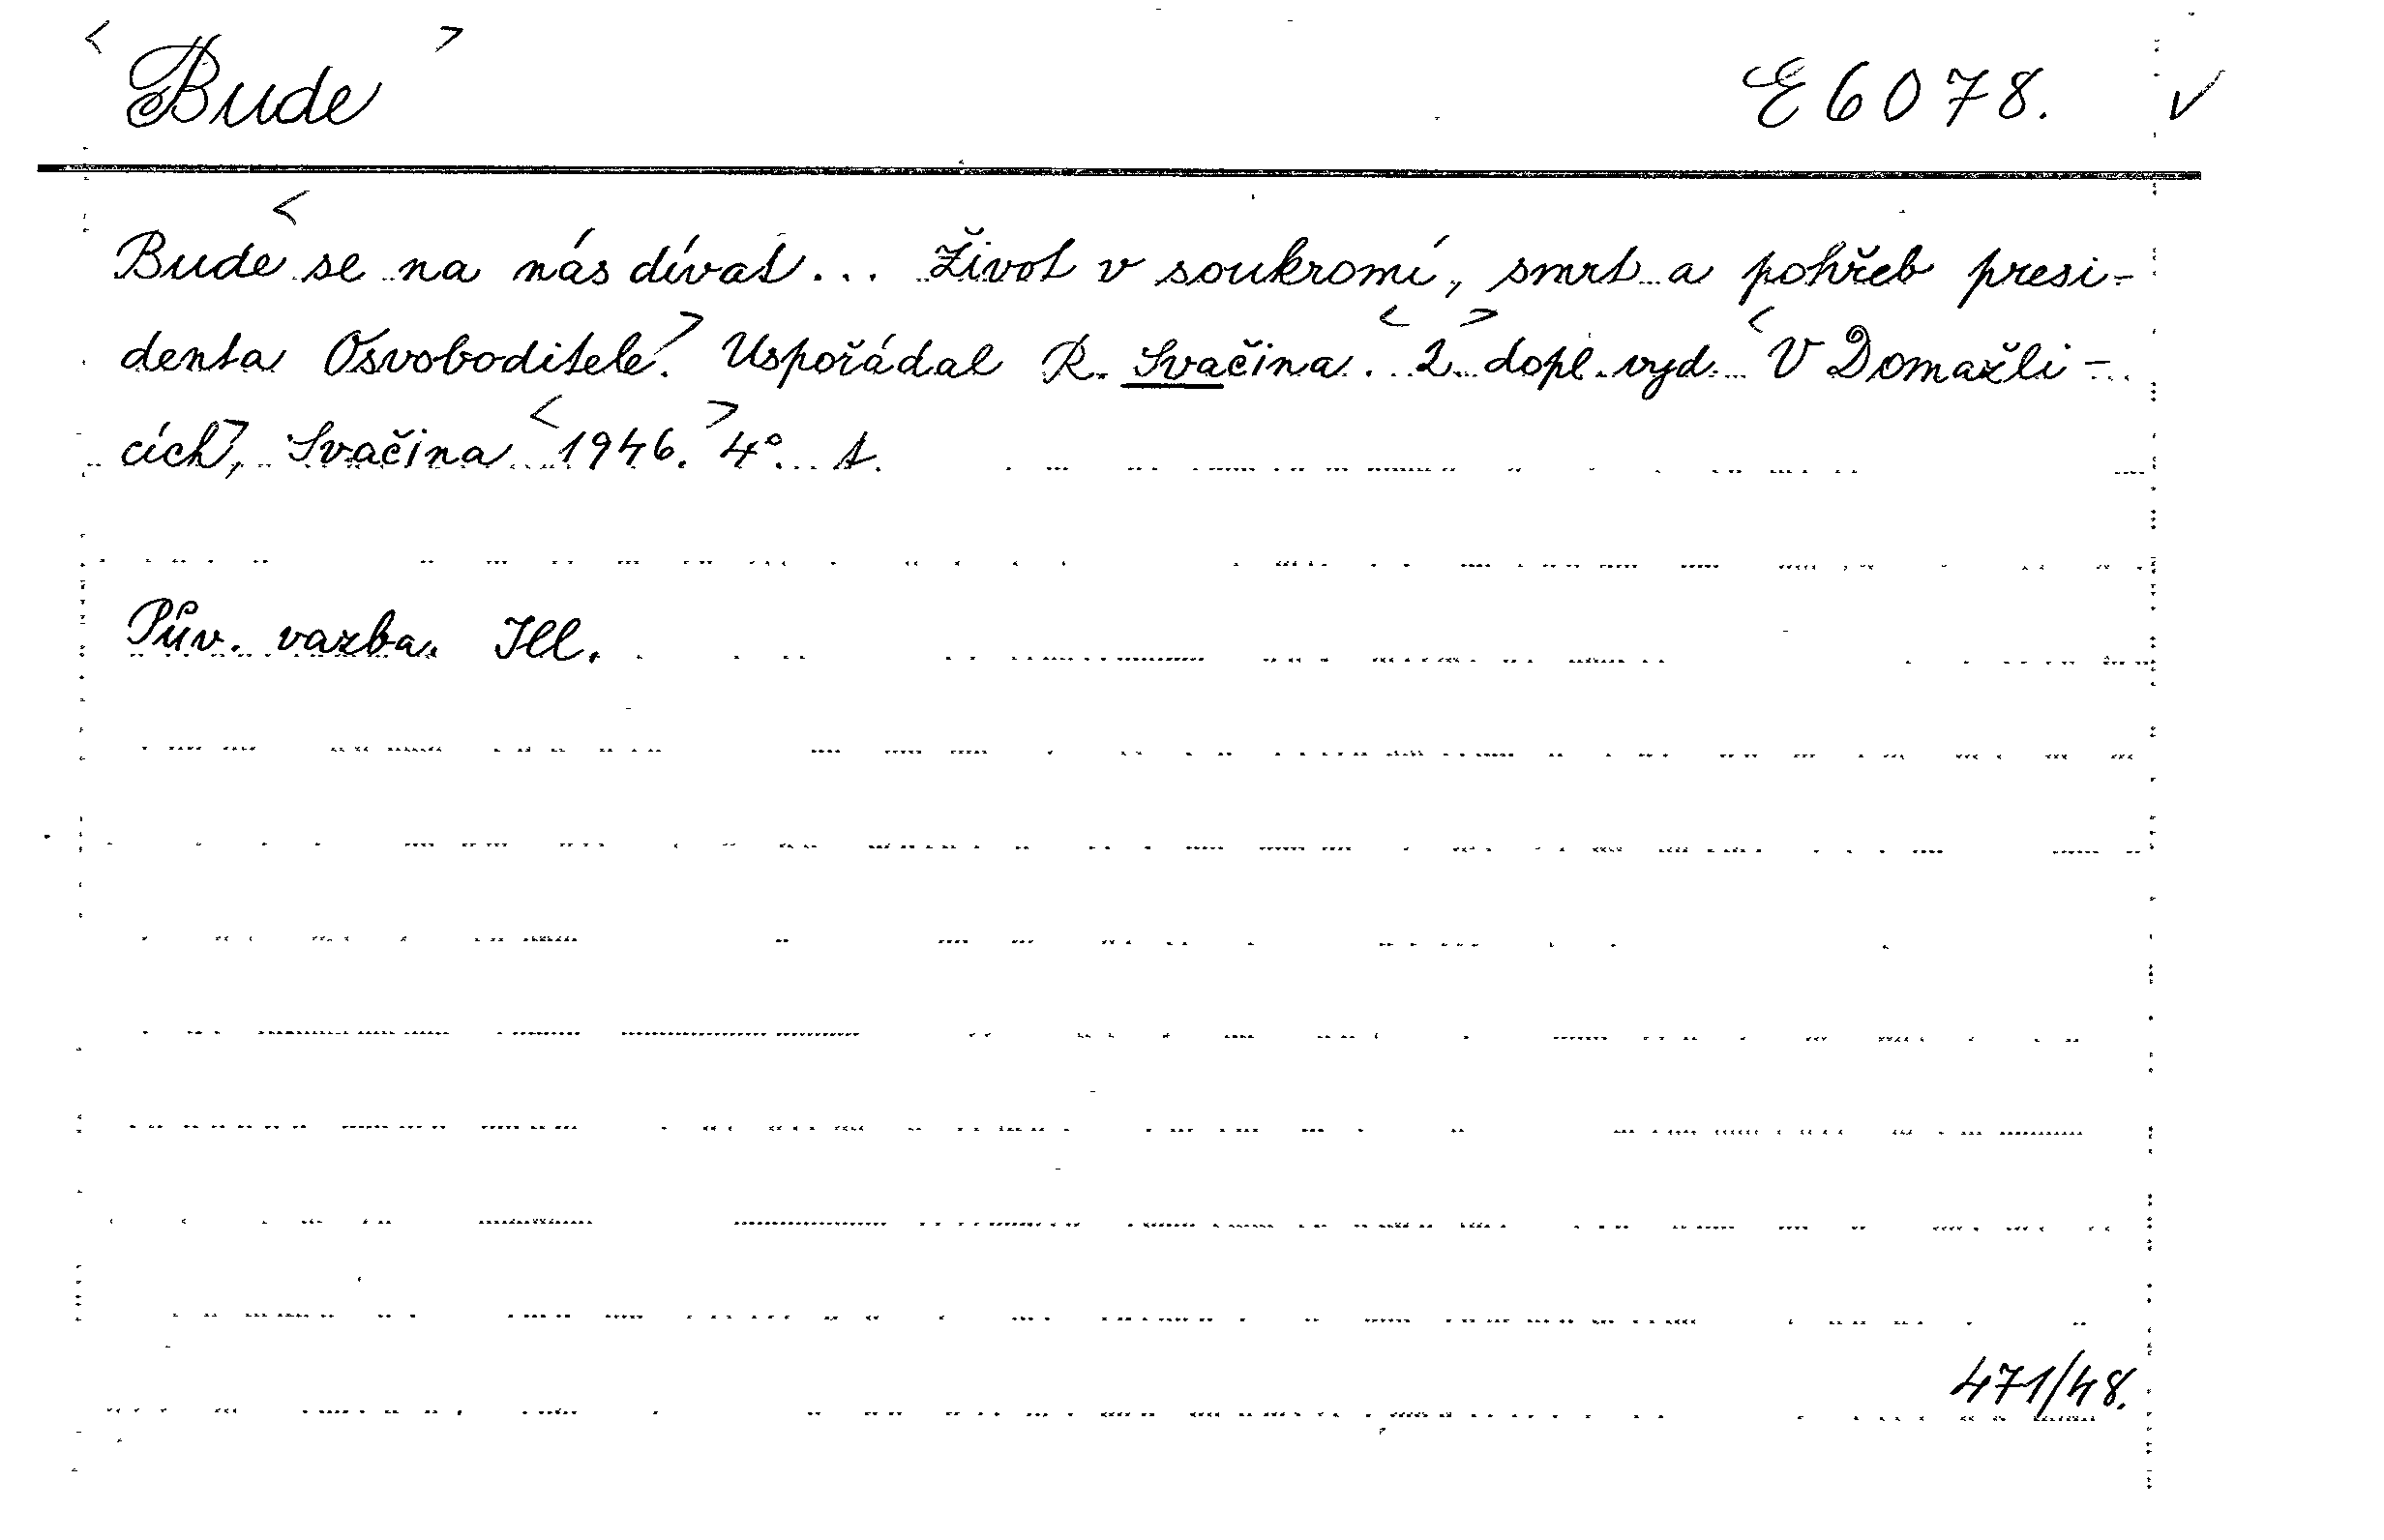 <Bude> E 6078. v
<Bude se na nás dívat... Život v soukromí, smrt a pohřeb presi-
denta Osvoboditele.> Uspořádal R. Svačina. <2.> dopl. vyd. <V Domažli-
cích>, Svačina <1946.> 4°. t.
Pův. vazba. Ill.
471/48.